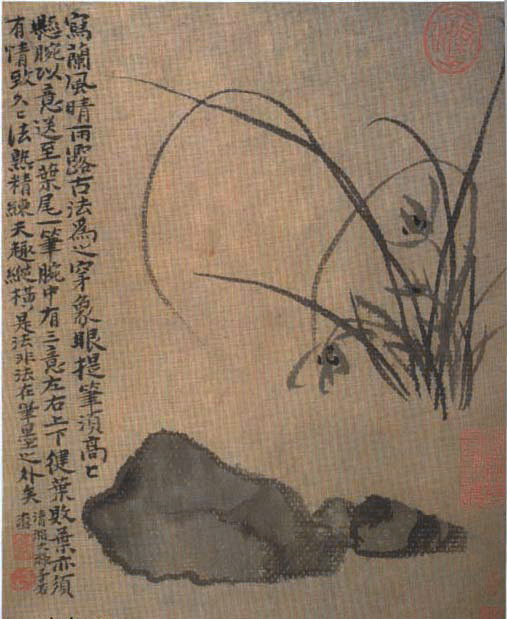 寫蘭風晴雨露古法爲之穿象眼提筆須高〻
懸腕以意送至葉尾一筆腕中有三意左右上下健葉敗葉亦須
有情致久〻法熟精練天趣縱橫是法非法在筆墨之外矣
清湘大滌子